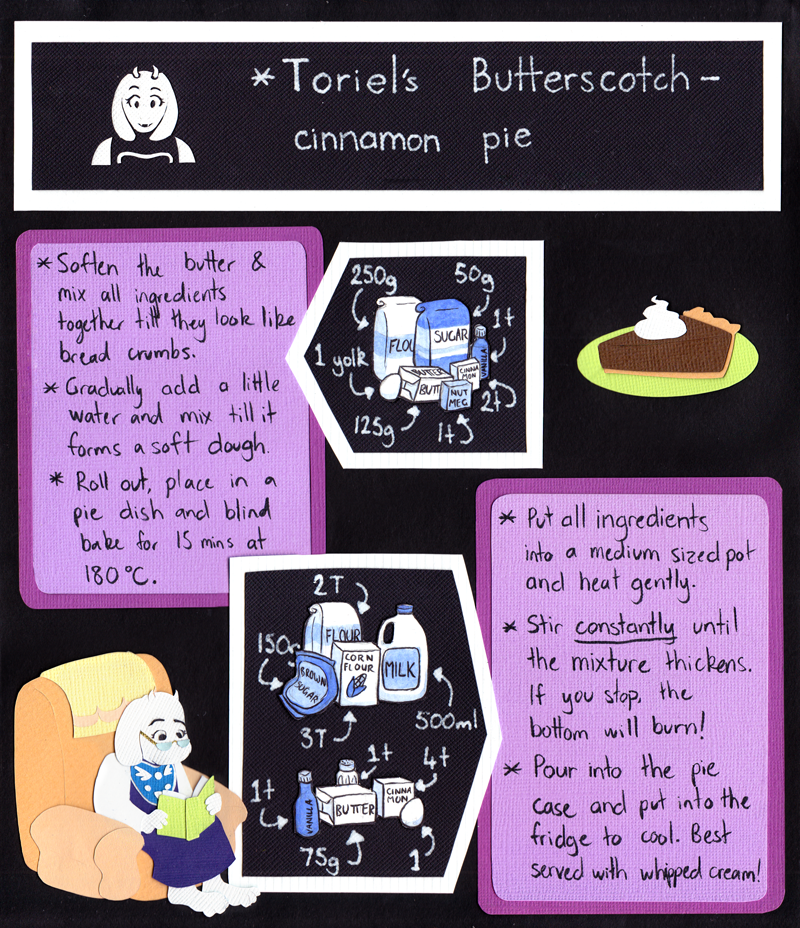 *Toriel's Butterscotch-
cinnamon pie
* Soften the butter &
mix all ingredients
together till they look like
bread crumbs.
* Gradually add a little
water and mix till it
forms a soft dough.
* Roll out, place in a
pie dish and blind
bake for 15 mins at
180°C.
250g
50g
FLOU
SUGAR
1t
VANILLA
1 yolk
BUTTER
BUTT
CINNA
MON
NUT
MEG
2t
125g
1t
2T
FLOUR
150g
CORN
FLOUR
BROWN
SUGAR
MILK
500ml
3T
1t
4t
1t
VANILLA
BUTTER
CINNA
MON
75g
1
* Put all ingredients
into a medium sized pot
and heat gently.
* Stir constantly until
the mixture thickens.
If you stop, the
bottom will burn!
* Pour into the pie
case and put into the
fridge to cool. Best
served with whipped cream!